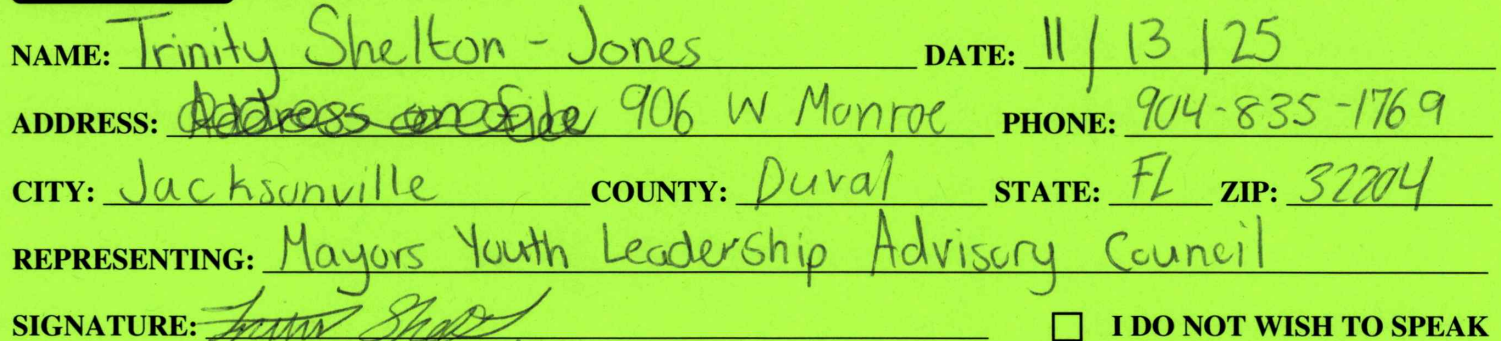 NAME: Trinity Shelton - Jones DATE: 11 / 13 / 25
ADDRESS: 906 W Monroe PHONE: 904-835-1769
CITY: Jacksonville COUNTY: Duval STATE: FL ZIP: 32204
REPRESENTING: Mayors Youth Leadership Advisory Council
SIGNATURE: I DO NOT WISH TO SPEAK